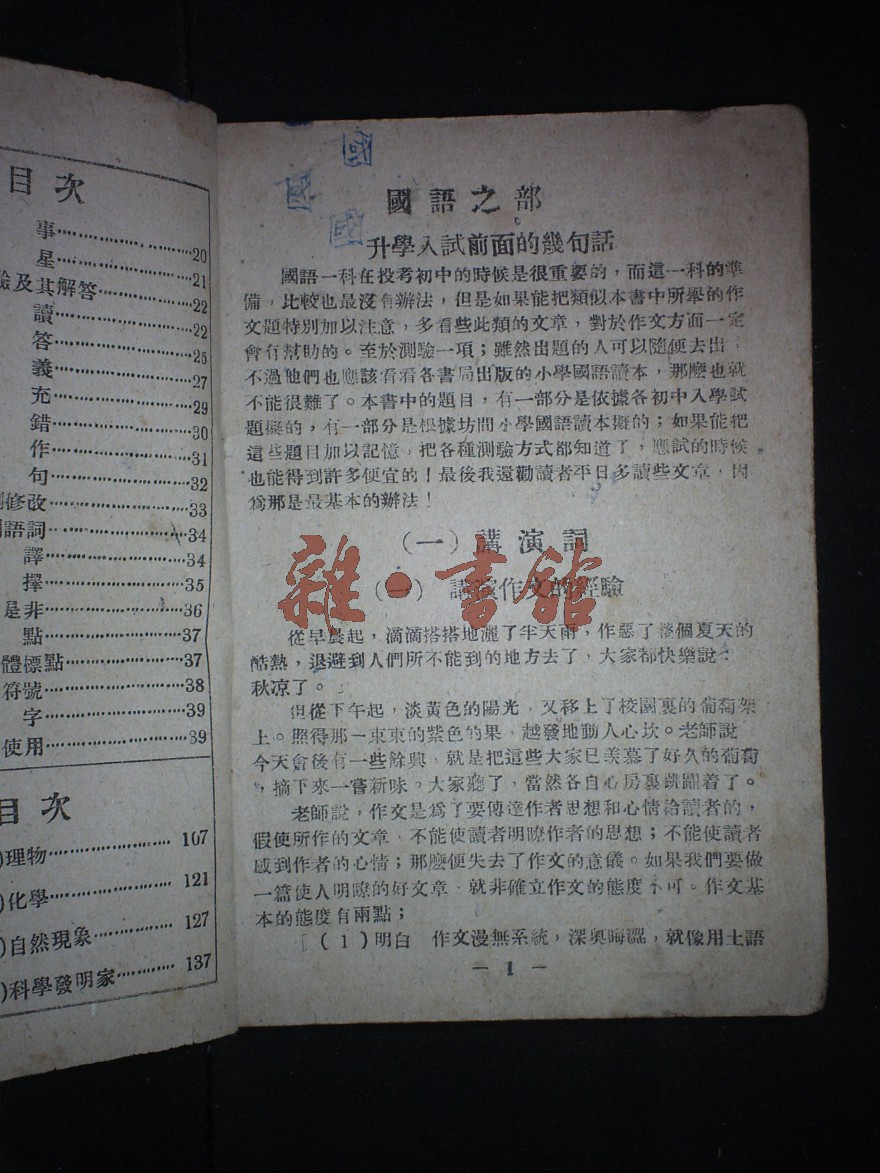 目次
事 20
星 21
驗及其解答 22
讀 22
答 25
義 27
充 29
錯 30
作 31
句 32
修改 33
語詞 34
譯 34
擇 35
是非 36
點 37
體標點 37
符號 38
字 39
使用 39
目次
)理物 107
)化學 121
)自然現象 127
)科學發明家 137
國
國
國
國語之部
升學入試前面的幾句話
國語一科在投考初中的時候是很重要的，而這一科的準
備，比較也最沒有辦法，但是如果能把類似本書中所舉的作
文題特別加以注意，多看些此類的文章，對於作文方面一定
會有幫助的。至於測驗一項；雖然出題的人可以隨便去出，
不過他們也應該看看各書局出版的小學國語讀本，那麽也就
不能很難了。本書中的題目，有一部分是依據各初中入學試
題擬的，有一部分是根據坊間小學國語讀本擬的；如果能把
這些題目加以記憶，把各種測驗方式都知道了，應試的時候
也能得到許多便宜的！最後我還勸讀者平日多讀些文章，因
爲那是最基本的辦法！
（一）講演詞
（一）講演作文的經驗
雜·書館
從早晨起，滴滴搭搭地灑了半天雨，作惡了整個夏天的
酷熱，退避到人們所不能到的地方去了，大家都快樂說：
秋凉了。」
但從下午起，淡黃色的陽光，又移上了校園裏的葡萄架
上。照得那一束束的紫色的果，越發地動人心坎。老師說
今天會後有一些餘興，就是把這些大家已羡慕了好久的葡萄
，摘下來一嘗新味。大家聽了，當然各自心房裏跳躍着了。
老師說，作文是爲了要傳達作者思想和心情給讀者的，
假使所作的文章，不能使讀者明瞭作者的思想；不能使讀者
感到作者的心情；那麽便失去了作文的意義。如果我們要做
一篇使人明瞭的好文章，就非確立作文的態度不可。作文基
本的態度有兩點；
（1）明白　作文漫無系統，深奧晦澀，就像用土語
— 1 —